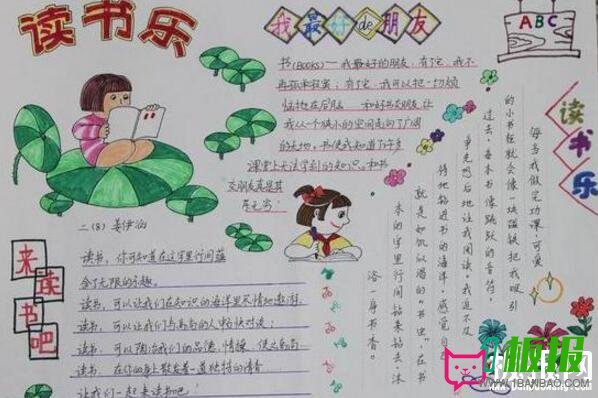 读书乐
我最好de朋友
ABC
书(BOOKS)——我最好的朋友,有了它,我不
再孤单寂寞;有了它,我可以把一切烦
恼抛在后脑,和好书交朋友,让
我从一个狭小的空间走向了广阔
的天地。书使我知道了许多
课堂上无法学到的知识。和书
交朋友真是其
乐无穷!
二(8) 姜伊涵
来读书吧
读书,你可知道在这字里行间蕴
含了无限的乐趣。
读书,可以让我们在知识的海洋里尽情地遨游。
读书,可以让我们与高尚的人中畅快对流;
读书,可以陶冶我们的品德,情操,使之高尚
读书,在你的身上散发着一道独特的清香
让我们一起来读书吧!
读书乐
每当我做完功课,可爱
的小书柜就会像一块磁铁把我吸引
过去。每本书像跳跃的音符,
争先恐后地让我阅读。我迫不及
待地游进书的海洋,感觉自己
就是如饥似渴的“书虫”,在书
本的字里行间钻来钻去,沐
浴一身书香。
板报
WWW.1BANBAO.COM